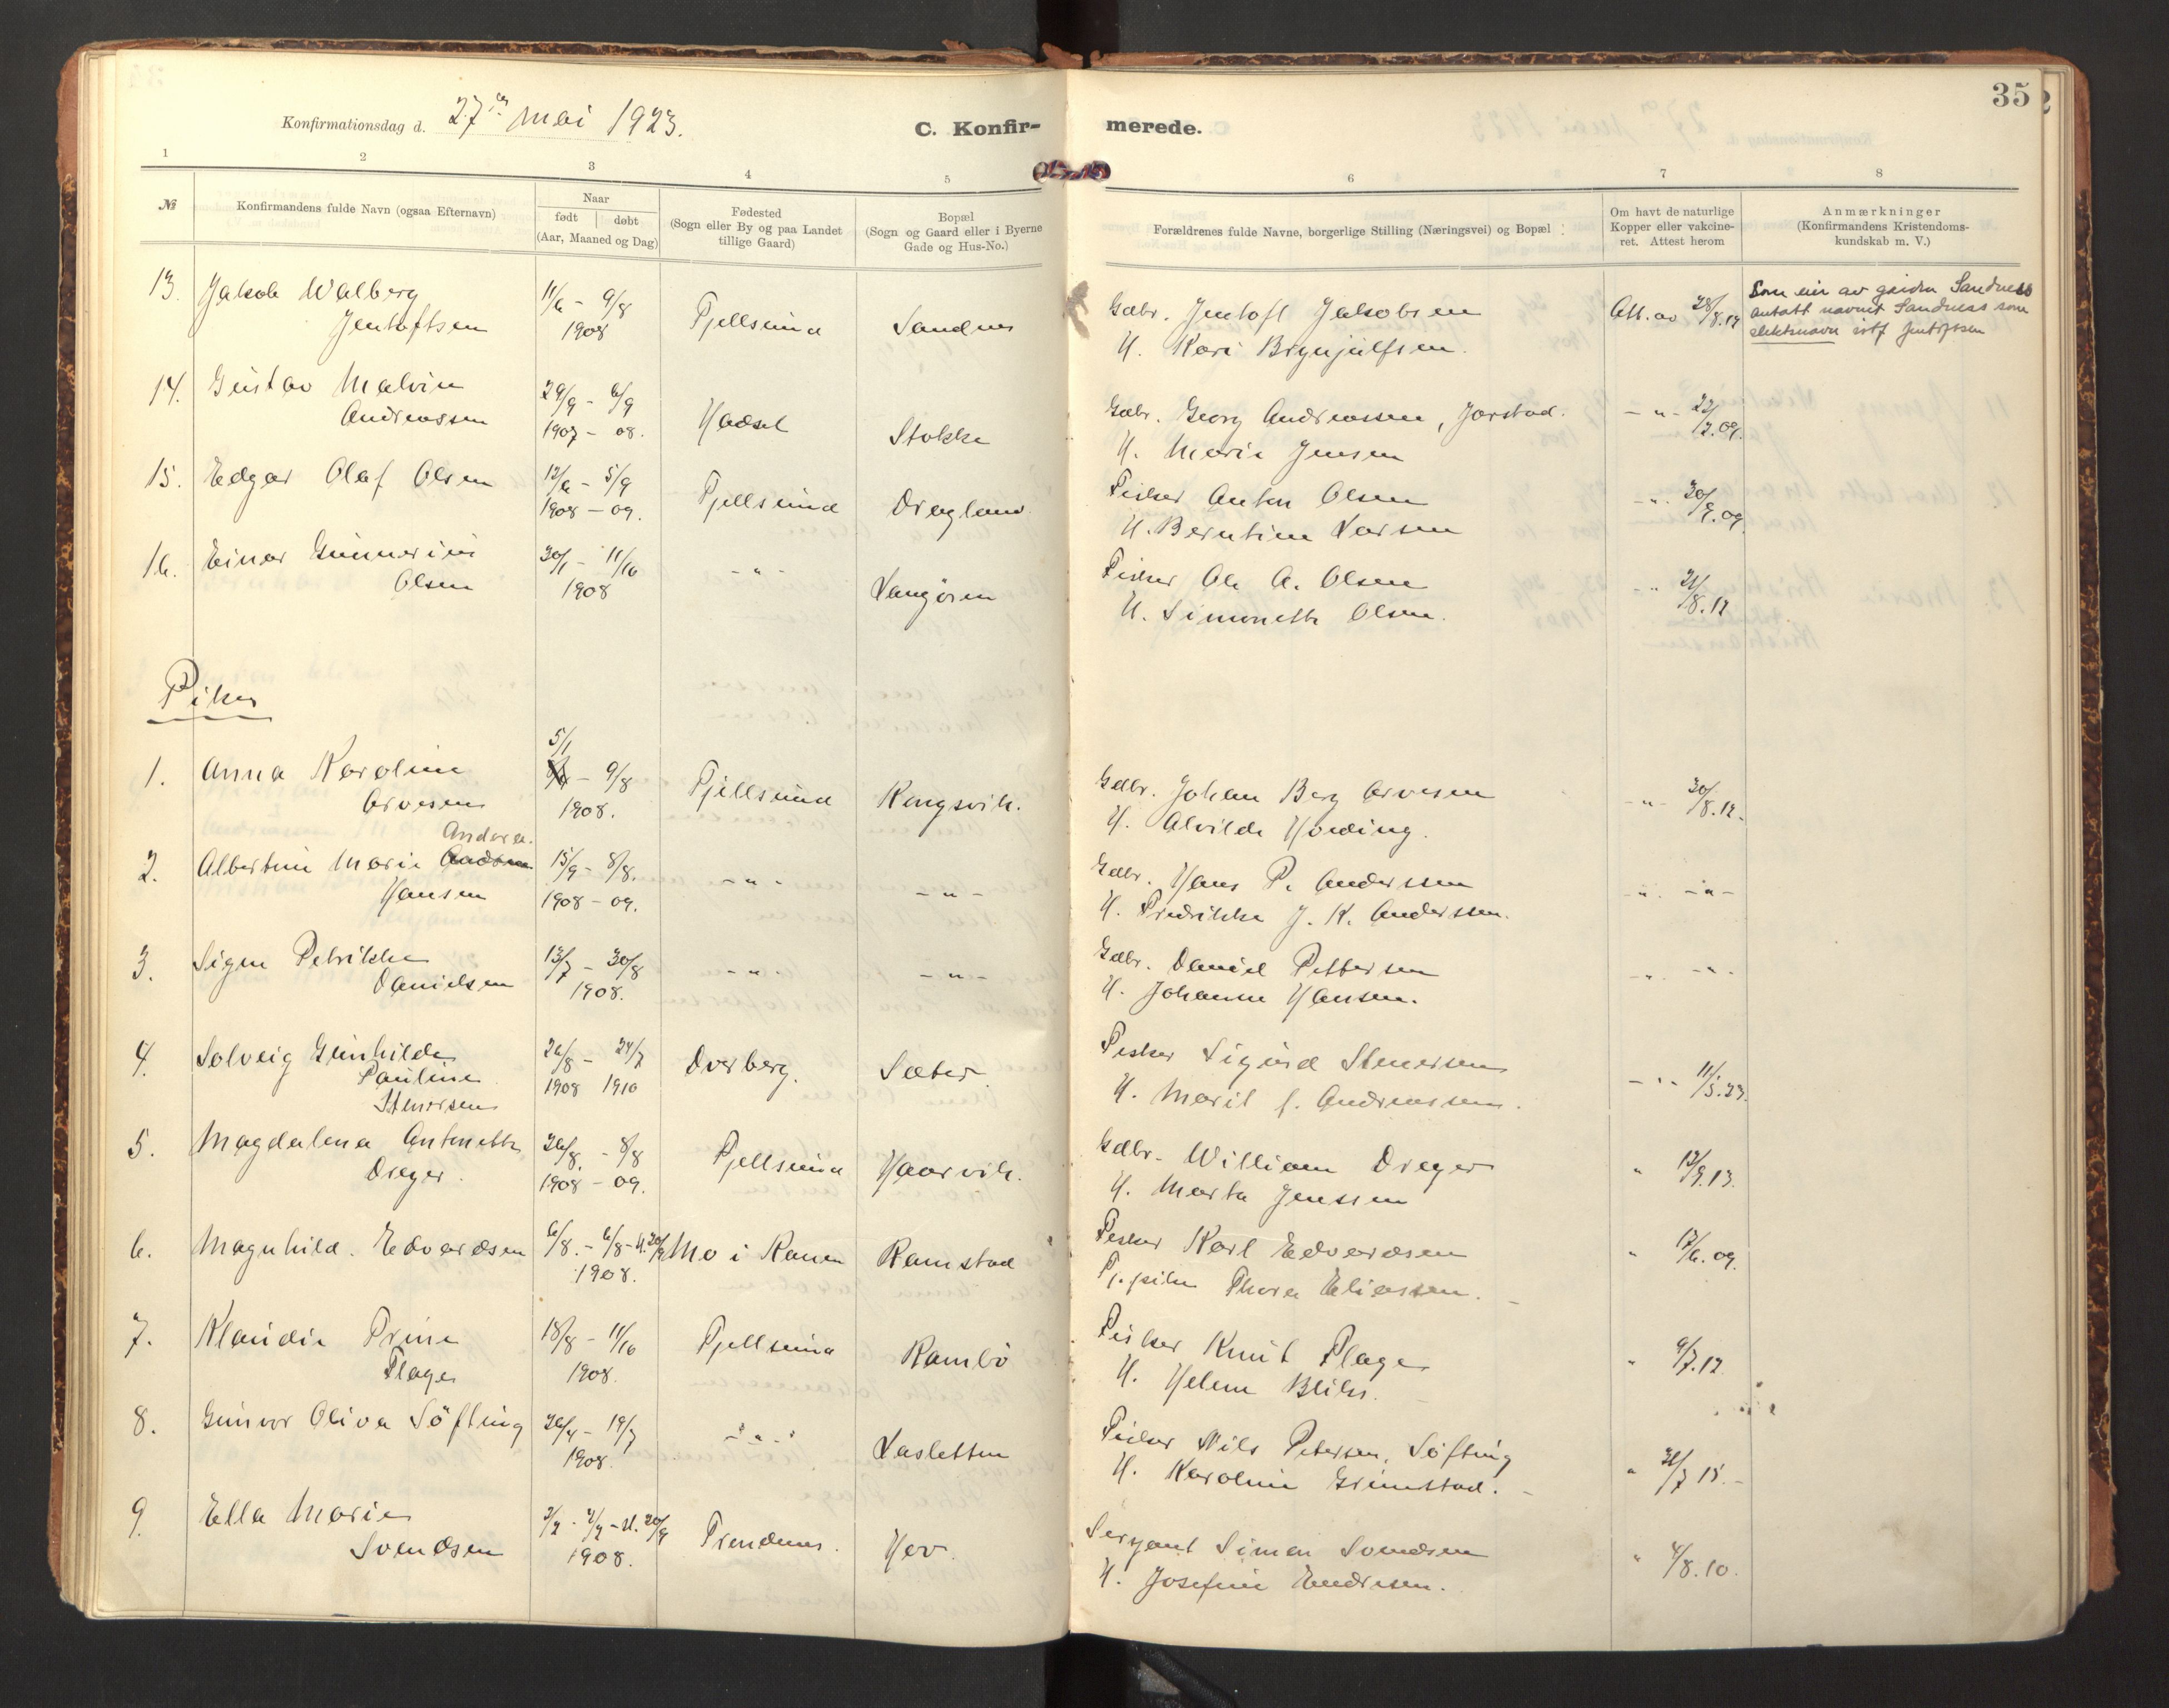 35
Konfirmationsdag d. 27de mai 1923.
C. Konfir-
merede.
1 2 3 4 5 6 7 8
№
Konfirmandens fulde Navn (ogsaa Efternavn)
Naar
født døbt
(Aar, Maaned og Dag)
Fødested
(Sogn eller By og paa Landet
tillige Gaard)
Bopæl
(Sogn og Gaard eller i Byerne
Gade og Hus-No.)
Forældrenes fulde Navne, borgerlige Stilling (Næringsvei) og Bopæl
Om havt de naturlige
Kopper eller vakcine-
ret. Attest herom
Anmærkninger
(Konfirmandens Kristendoms-
kundskab m. V.)
13. Jakob Walberg
Jentoftsen
11/6 - 9/8
1908
Fjellsund
Sandnes
Gdbr. Jentoft Jakobsen
H. Kari Brynjulfsen.
Att. av 28/8.19
Som eier av gaarden Sandness
antatt navnet Sandness som
slektsnavn istf Jentoftsen
14. Gustav Malvin
Andreassen
29/9 - 6/9
1907 - 08.
Hadsel
Stokke
Gdbr. Georg Andreassen, Jorstad.
H. Marie Jensen
- " - 22/7.09.
15. Edgar Olaf Olsen
12/6 - 5/9
1908 - 09.
Fjellsund
Dragland
Fisker Anton Olsen
H. Berntine Larsen
- " - 30/9.09
16. Einar Gunnerius
Olsen
30/1 - 11/10
1908
- " -
Langøren
Fisker Ole A. Olsen
H. Simonette Olsen.
- " - 21/8.12
Piker
1. Anna Karoline
Arvesen
5/1
- 9/8
1908.
Fjellsund
Kongsvik.
Gdbr. Johan Berg Arvesen
H. Alvilde Hveding.
- " - 30/8.12.
2. Albertine Marie Andrea
Hansen
15/9 - 8/8.
1908 - 09.
- " -
- " -
Gdbr. Hans P. Anderssen
H. Fredrikke J. K. Anderssen.
- " - - " -
3. Signe Petrikke
Danielsen
13/7 - 30/8
1908.
- " -
- " -
Gdbr. Daniel Pettersen
H. Johanne Hansen.
- " - - " -
4. Solveig Gunhilde
Pauline
Stenersen
26/8 - 24/7
1908 1910
Dverberg.
Sæter.
Fisker Sigurd Stenersen
H. Marit f. Andreassen.
- " - 11/5.23.
5. Magdalena Antonette
Dreyer.
26/8. - 8/8
1908 - 09.
Fjellsund
Haarvik.
Gdbr. William Dreyer
H. Marta Jenssen
" 12/9.13.
6. Magnhild. Edvardsen
6/8. - 6/8 - St. 20/9
1908.
Mo i Ranen
Ramstad
Fisker Karl Edvardsen
Tj.pike Thora Eliassen.
" 17/6.09.
7. Klaudie Trine
Flage
18/8 - 11/10
1908.
Fjellsund
Rambø
Fisker Knut Flage
H. Helene Bliks.
" 9/7.12.
8. Gunvor Oliva Söfting
26/4 - 19/7
1908.
- " -
Lasletten
Fisker Nils Petersen, Söfting
H. Karoline Grimstad.
" 31/7 18.
9. Ella Marie
Svendsen
3/2 - 4/2 - St. 20/9
1908.
Trondenes.
Hov.
Sergeant Simon Svendsen
H. Josefine Endresen.
" 4/8.10.